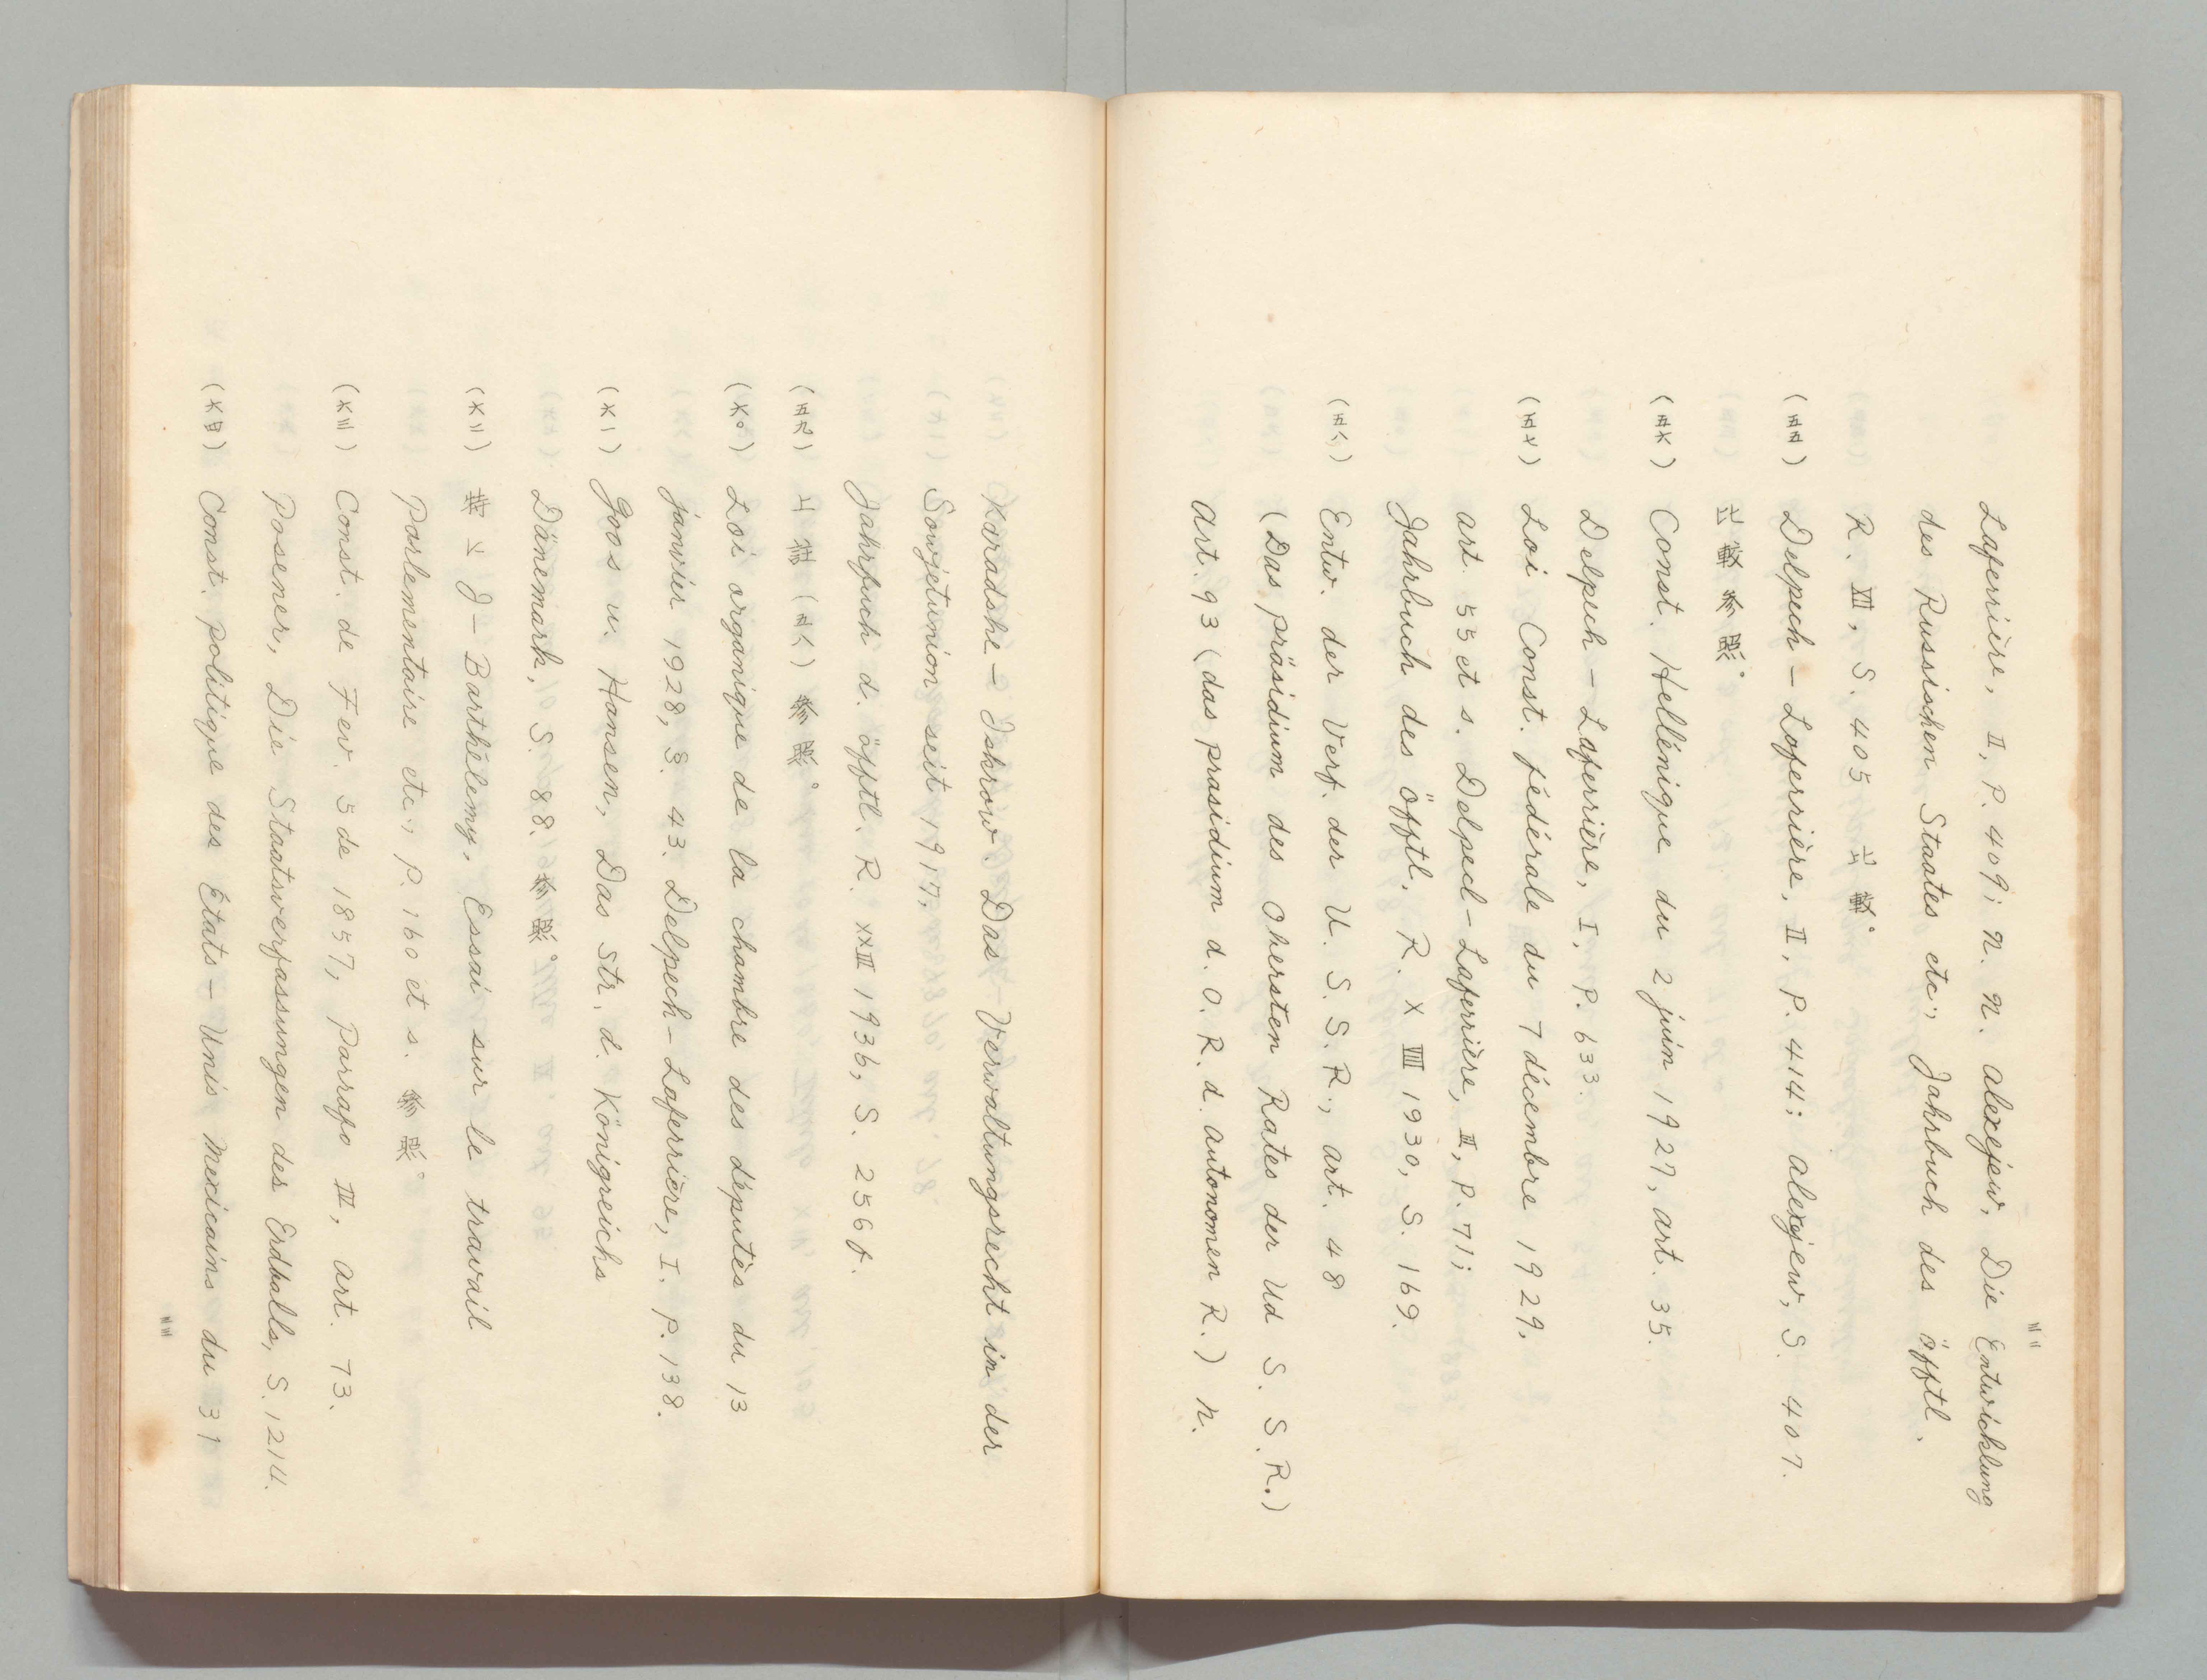 四二
Laferrière, II, P. 409; N. N. Alexejew, Die Entwicklung
des Russischen Staates etc., Jahrbuch des öfftl.
R. XII, S. 405 比較。
(五五) Delpech – Laferrière, II, P. 414; Alexejew, S. 407.
比較参照。
(五六) Const. Hellénique du 2 juin 1927, art. 35.
Delpech – Laferrière, I, P. 633.
(五七) Loi Const. fédérale du 7 décembre 1929,
art. 55 et s. Delpecl – Laferrière, II, P. 71;
Jahrbuch des öfftl. R. X VIII 1930, S. 169.
(五八) Entw. der Verf. der U. S. S. R., art. 48
(Das präsidium des Obersten Rates der Ud S. S. R.)
Art. 93 (das prasidium d. O. R. d. autonomen R.) N.
Karadshe – Iskrow. Das – Verwaltungsrecht in der
Sowjetunion seit 1917,
Jahrbuch d. öfftl. R. XXIII 1936, S. 256 f.
(五九) 上註(五八)参照。
(六〇) Loi organique de la chambre des députés du 13
janvier 1928, S. 43. Delpech – Laferrière, I. P. 138.
(六一) Goos u. Hansen, Das Str. d. Königreichs
Dänemark, S. 88. 参照。
(六二) 特ニ J – Barthélemy, Essai sur le travail
Parlementaire etc., P. 160 et s. 参照。
(六三) Const. de Fev. 5 de 1857, Parrafo III, art. 73.
Posener, Die Staatsverfassungen des Erdballs, S. 1214.
(六四) Const. politique des États – Unis Mexicains du 31
四三